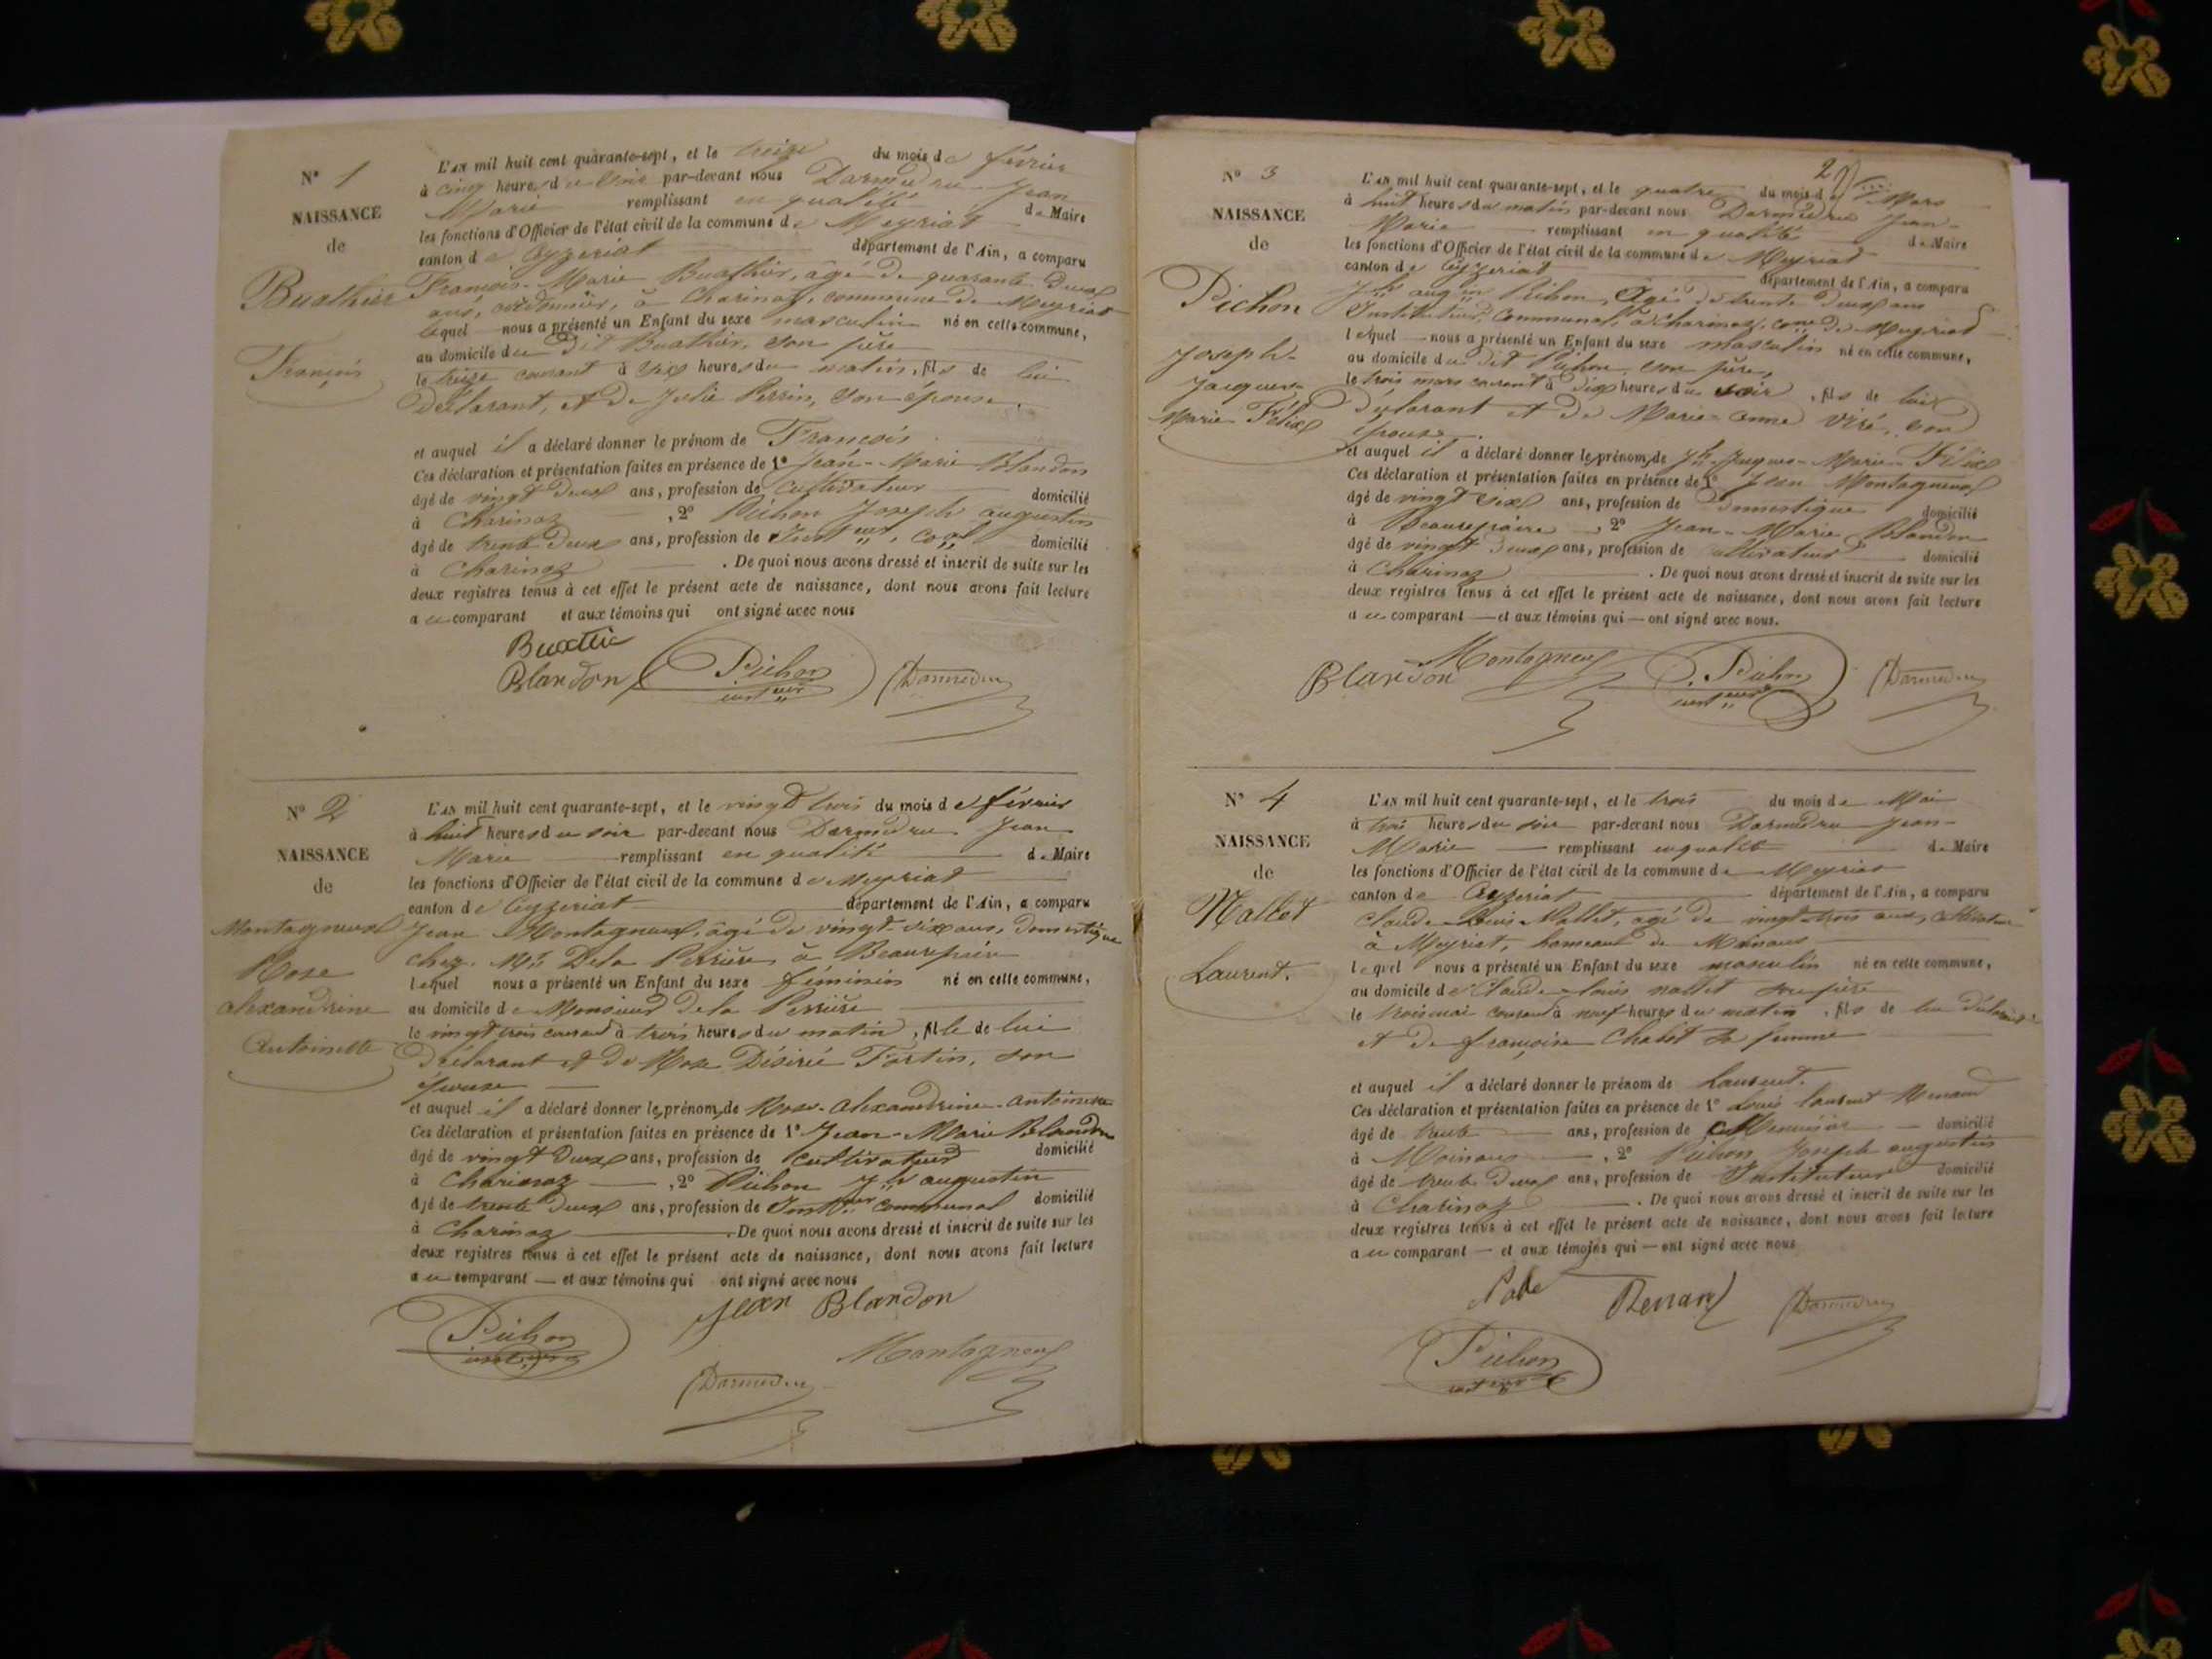 N° 1
NAISSANCE
de
Buathier
François
L'AN mil huit cent quarante-sept, et le treize du mois de février
à cinq heures du soir par-devant nous Darmedru Jean
Marie remplissant en qualité de Maire
les fonctions d'Officier de l'état civil de la commune de Meyriat
canton de Ceyzeriat département de l'Ain, a comparu
François-Marie Buathier, âgé de quarante deux
ans, cordonnier, à Charinaz, commune de Meyriat
lequel nous a présenté un Enfant du sexe masculin né en cette commune,
au domicile du dit Buathier, son père
le treize courant à six heures du matin, fils de lui
déclarant, et de Julie Perrin, son épouse.
et auquel il a déclaré donner le prénom de François
Ces déclaration et présentation faites en présence de 1° Jean-Marie Blandon
âgé de vingt deux ans, profession de cultivateur domicilié
à Charinaz, 2° Pichon Joseph augustin
âgé de trente deux ans, profession de Insteur coal domicilié
à Charinaz. De quoi nous avons dressé et inscrit de suite sur les
deux registres tenus à cet effet le présent acte de naissance, dont nous avons fait lecture
au comparant et aux témoins qui ont signé avec nous
Blandon Pichon Darmedru
insteur
N° 2
NAISSANCE
de
Montagneux
Rose
alexandrine
Antoinette
L'AN mil huit cent quarante-sept, et le vingt trois du mois de février
à huit heures du soir par-devant nous Darmedru Jean
Marie remplissant en qualité de Maire
les fonctions d'Officier de l'état civil de la commune de Meyriat
canton de Ceyzeriat département de l'Ain, a comparu
Jean Montagneux, âgé de vingt-six ans, domestique
chez Mr Dela Perrière à Beaurepaire
lequel nous a présenté un Enfant du sexe féminin né en cette commune,
au domicile de Monsieur dela Perrière
le vingt trois courant à trois heures du matin, fille de lui
déclarant et de Rose Désirée Fortin, son
épouse
et auquel il a déclaré donner les prénoms de Rose-Alexandrine-Antoinette
Ces déclaration et présentation faites en présence de 1° Jean-Marie Blandon
âgé de vingt deux ans, profession de cultivateur domicilié
à Charinaz, 2° Pichon Jph augustin
âgé de trente deux ans, profession de Insteur communal domicilié
à Charinaz. De quoi nous avons dressé et inscrit de suite sur les
deux registres tenus à cet effet le présent acte de naissance, dont nous avons fait lecture
au comparant et aux témoins qui ont signé avec nous
Jean Blandon
Pichon
Montagneux
Darmedru
N° 3
NAISSANCE
de
Pichon
Joseph-
Jacques-
Marie-Félix
2
L'AN mil huit cent quarante-sept, et le quatre du mois de Mars
à huit heures du matin par-devant nous Darmedru Jean-
Marie remplissant en qualité de Maire
les fonctions d'Officier de l'état civil de la commune de Meyriat
canton de Ceyzeriat département de l'Ain, a comparu
Jph augin Pichon, Agé de trente deux ans
Instituteur Communal, à Charinaz, cone de Meyriat
lequel nous a présenté un Enfant du sexe masculin né en cette commune,
au domicile du dit Pichon son père,
le trois mars courant à dix heures du soir, fils de lui
déclarant et de Marie-anne Viré, son
épouse.
et auquel il a déclaré donner les prénoms de Jph-Jacques-Marie-Félix
Ces déclaration et présentation faites en présence de 1° Jean Montagneux
âgé de vingt six ans, profession de Domestique domicilié
à Beaurepaire, 2° Jean-Marie Blandon
âgé de vingt deux ans, profession de cultivateur domicilié
à Charinaz. De quoi nous avons dressé et inscrit de suite sur les
deux registres tenus à cet effet le présent acte de naissance, dont nous avons fait lecture
au comparant et aux témoins qui ont signé avec nous.
Blandon Montagneux Pichon Darmedru
insteur
N° 4
NAISSANCE
de
Nallet
Laurent.
L'AN mil huit cent quarante-sept, et le trois du mois de Mai
à trois heures du soir par-devant nous Darmedru Jean-
Marie remplissant en qualité de Maire
les fonctions d'Officier de l'état civil de la commune de Meyriat
canton de Ceyzeriat département de l'Ain, a comparu
Claude-Louis Nallet, agé de vingt-trois ans, cultivateur
à Meyriat, hameau de Moinans
lequel nous a présenté un Enfant du sexe masculin né en cette commune,
au domicile de Claude-louis nallet son père
le trois mai courant à neuf heures du matin, fils de lui déclarant
et de françoise Chabit sa femme
et auquel il a déclaré donner le prénom de Laurent.
Ces déclaration et présentation faites en présence de 1° Louis laurent Renaud
âgé de trente ans, profession de Menuisier domicilié
à Moinans, 2° Pichon Joseph augustin
âgé de trente deux ans, profession de Instituteur domicilié
à Charinaz. De quoi nous avons dressé et inscrit de suite sur les
deux registres tenus à cet effet le présent acte de naissance, dont nous avons fait lecture
au comparant et aux témoins qui ont signé avec nous
Darmedru
Pichon